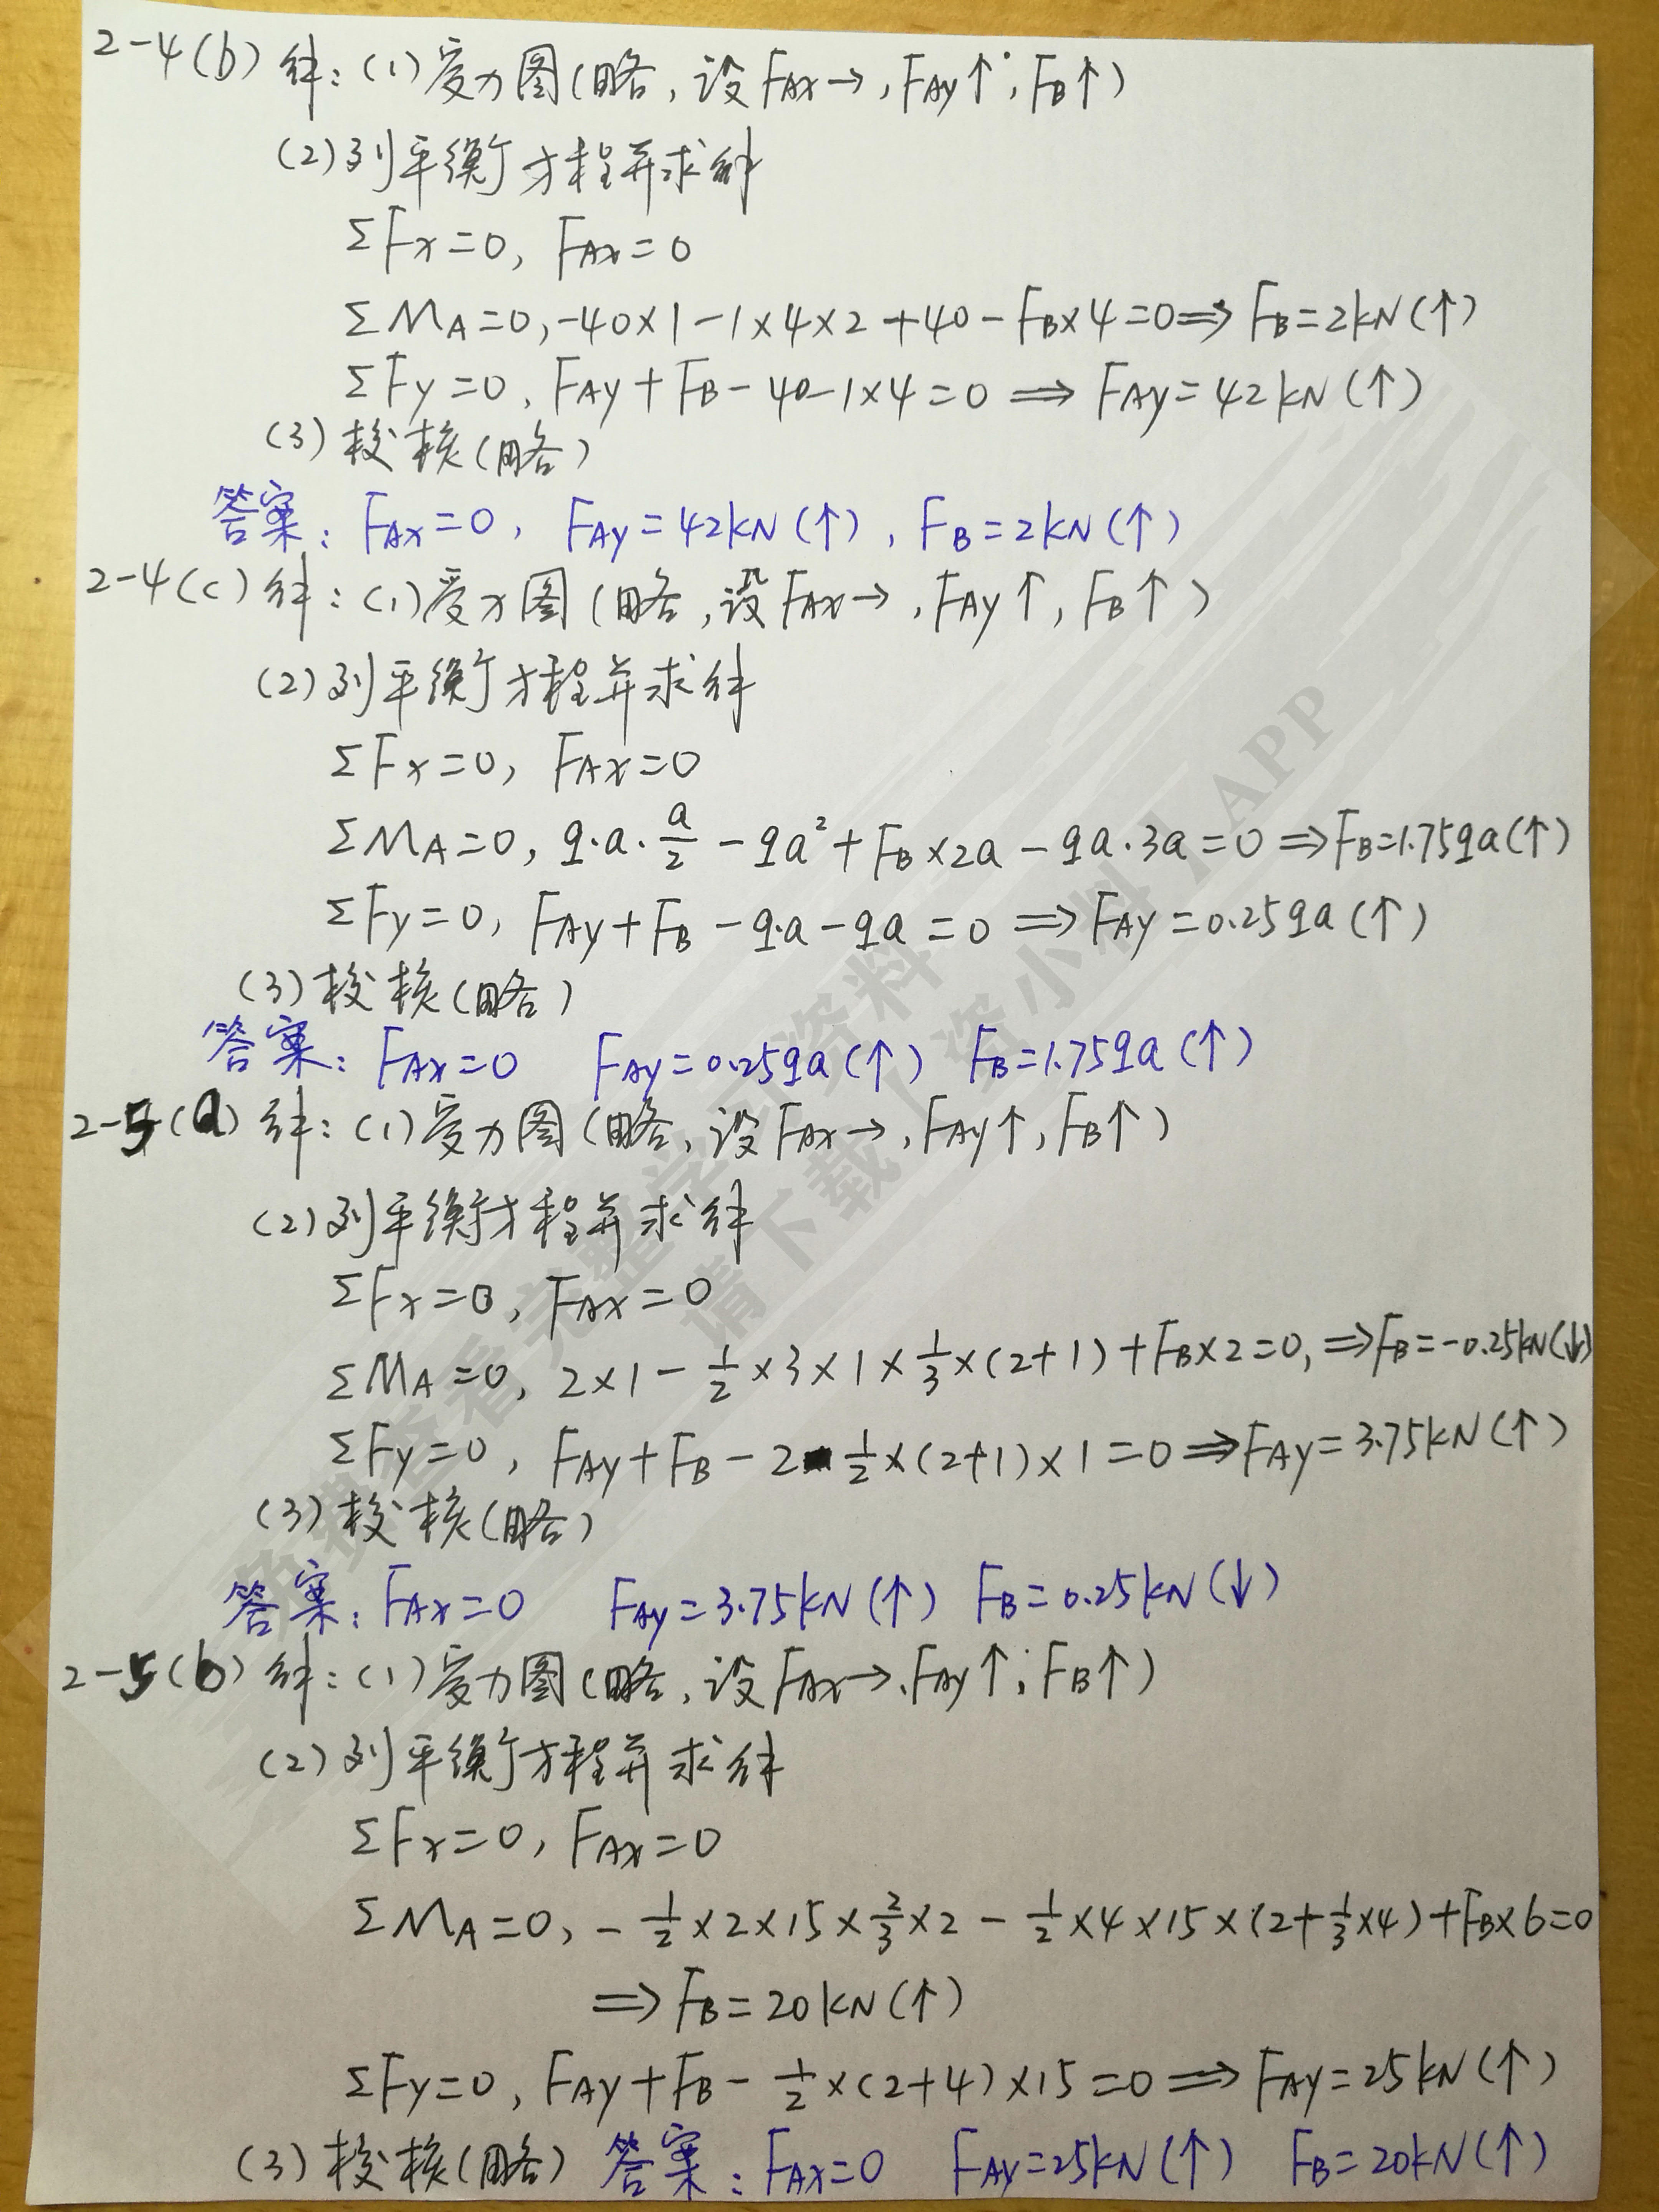 2-4(b) 解：(1)受力图(略，设FAx→，FAy↑，FB↑)
(2)列平衡方程并求解
ΣFx=0，FAx=0
ΣMA=0，-40×1-1×4×2+40-FB×4=0⇒FB=2kN(↑)
ΣFy=0，FAy+FB-40-1×4=0⇒FAy=42kN(↑)
(3)校核(略)
答案：FAx=0，FAy=42kN(↑)，FB=2kN(↑)
2-4(c)解：(1)受力图(略，设FAx→，FAy↑，FB↑)
(2)列平衡方程并求解
ΣFx=0，FAx=0
ΣMA=0，q·a·a/2-qa²+FB×2a-qa·3a=0⇒FB=1.75qa(↑)
ΣFy=0，FAy+FB-q·a-qa=0⇒FAy=0.25qa(↑)
(3)校核(略)
答案：FAx=0 FAy=0.25qa(↑) FB=1.75qa(↑)
2-5(a)解：(1)受力图(略，设FAx→，FAy↑，FB↑)
(2)列平衡方程并求解
ΣFx=0，FAx=0
ΣMA=0，2×1-1/2×3×1×1/3×(2+1)+FB×2=0，⇒FB=-0.25kN(↓)
ΣFy=0，FAy+FB-2-1/2×(2+1)×1=0⇒FAy=3.75kN(↑)
(3)校核(略)
答案：FAx=0 FAy=3.75kN(↑) FB=0.25kN(↓)
2-5(b)解：(1)受力图(略，设FAx→，FAy↑，FB↑)
(2)列平衡方程并求解
ΣFx=0，FAx=0
ΣMA=0，-1/2×2×15×2/3×2-1/2×4×15×(2+1/3×4)+FB×6=0
⇒FB=20kN(↑)
ΣFy=0，FAy+FB-1/2×(2+4)×15=0⇒FAy=25kN(↑)
(3)校核(略) 答案：FAx=0 FAy=25kN(↑) FB=20kN(↑)
免费查看完整学习资料
请下载 资小料 APP